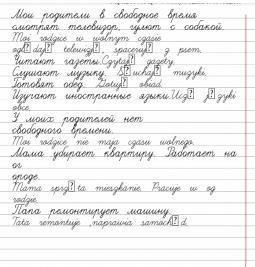 Мои родители в свободное время
смотрят телевизор, гуляют с собакой.
Moi rodzice w wolnym czasie
ogl□daj□ telewizj□, spaceruj□ z psem.
Читают газеты. Czytaj□ gazety.
Слушают музыку. S□uchaj□ muzyki.
Готовят обед. Gotuj□ obiad.
Изучают иностранные языки. Ucz□ j□zyki
obce.
У моих родителей нет
свободного времени.
Moi rodzice nie maja czasu wolnego.
Мама убирает квартиру. Работает на
ог
ороде.
Mama sprz□ta mieszkanie. Pracuje w og
rodzie.
Папа ремонтирует машину.
Tata remontuje, naprawia samoch□d.